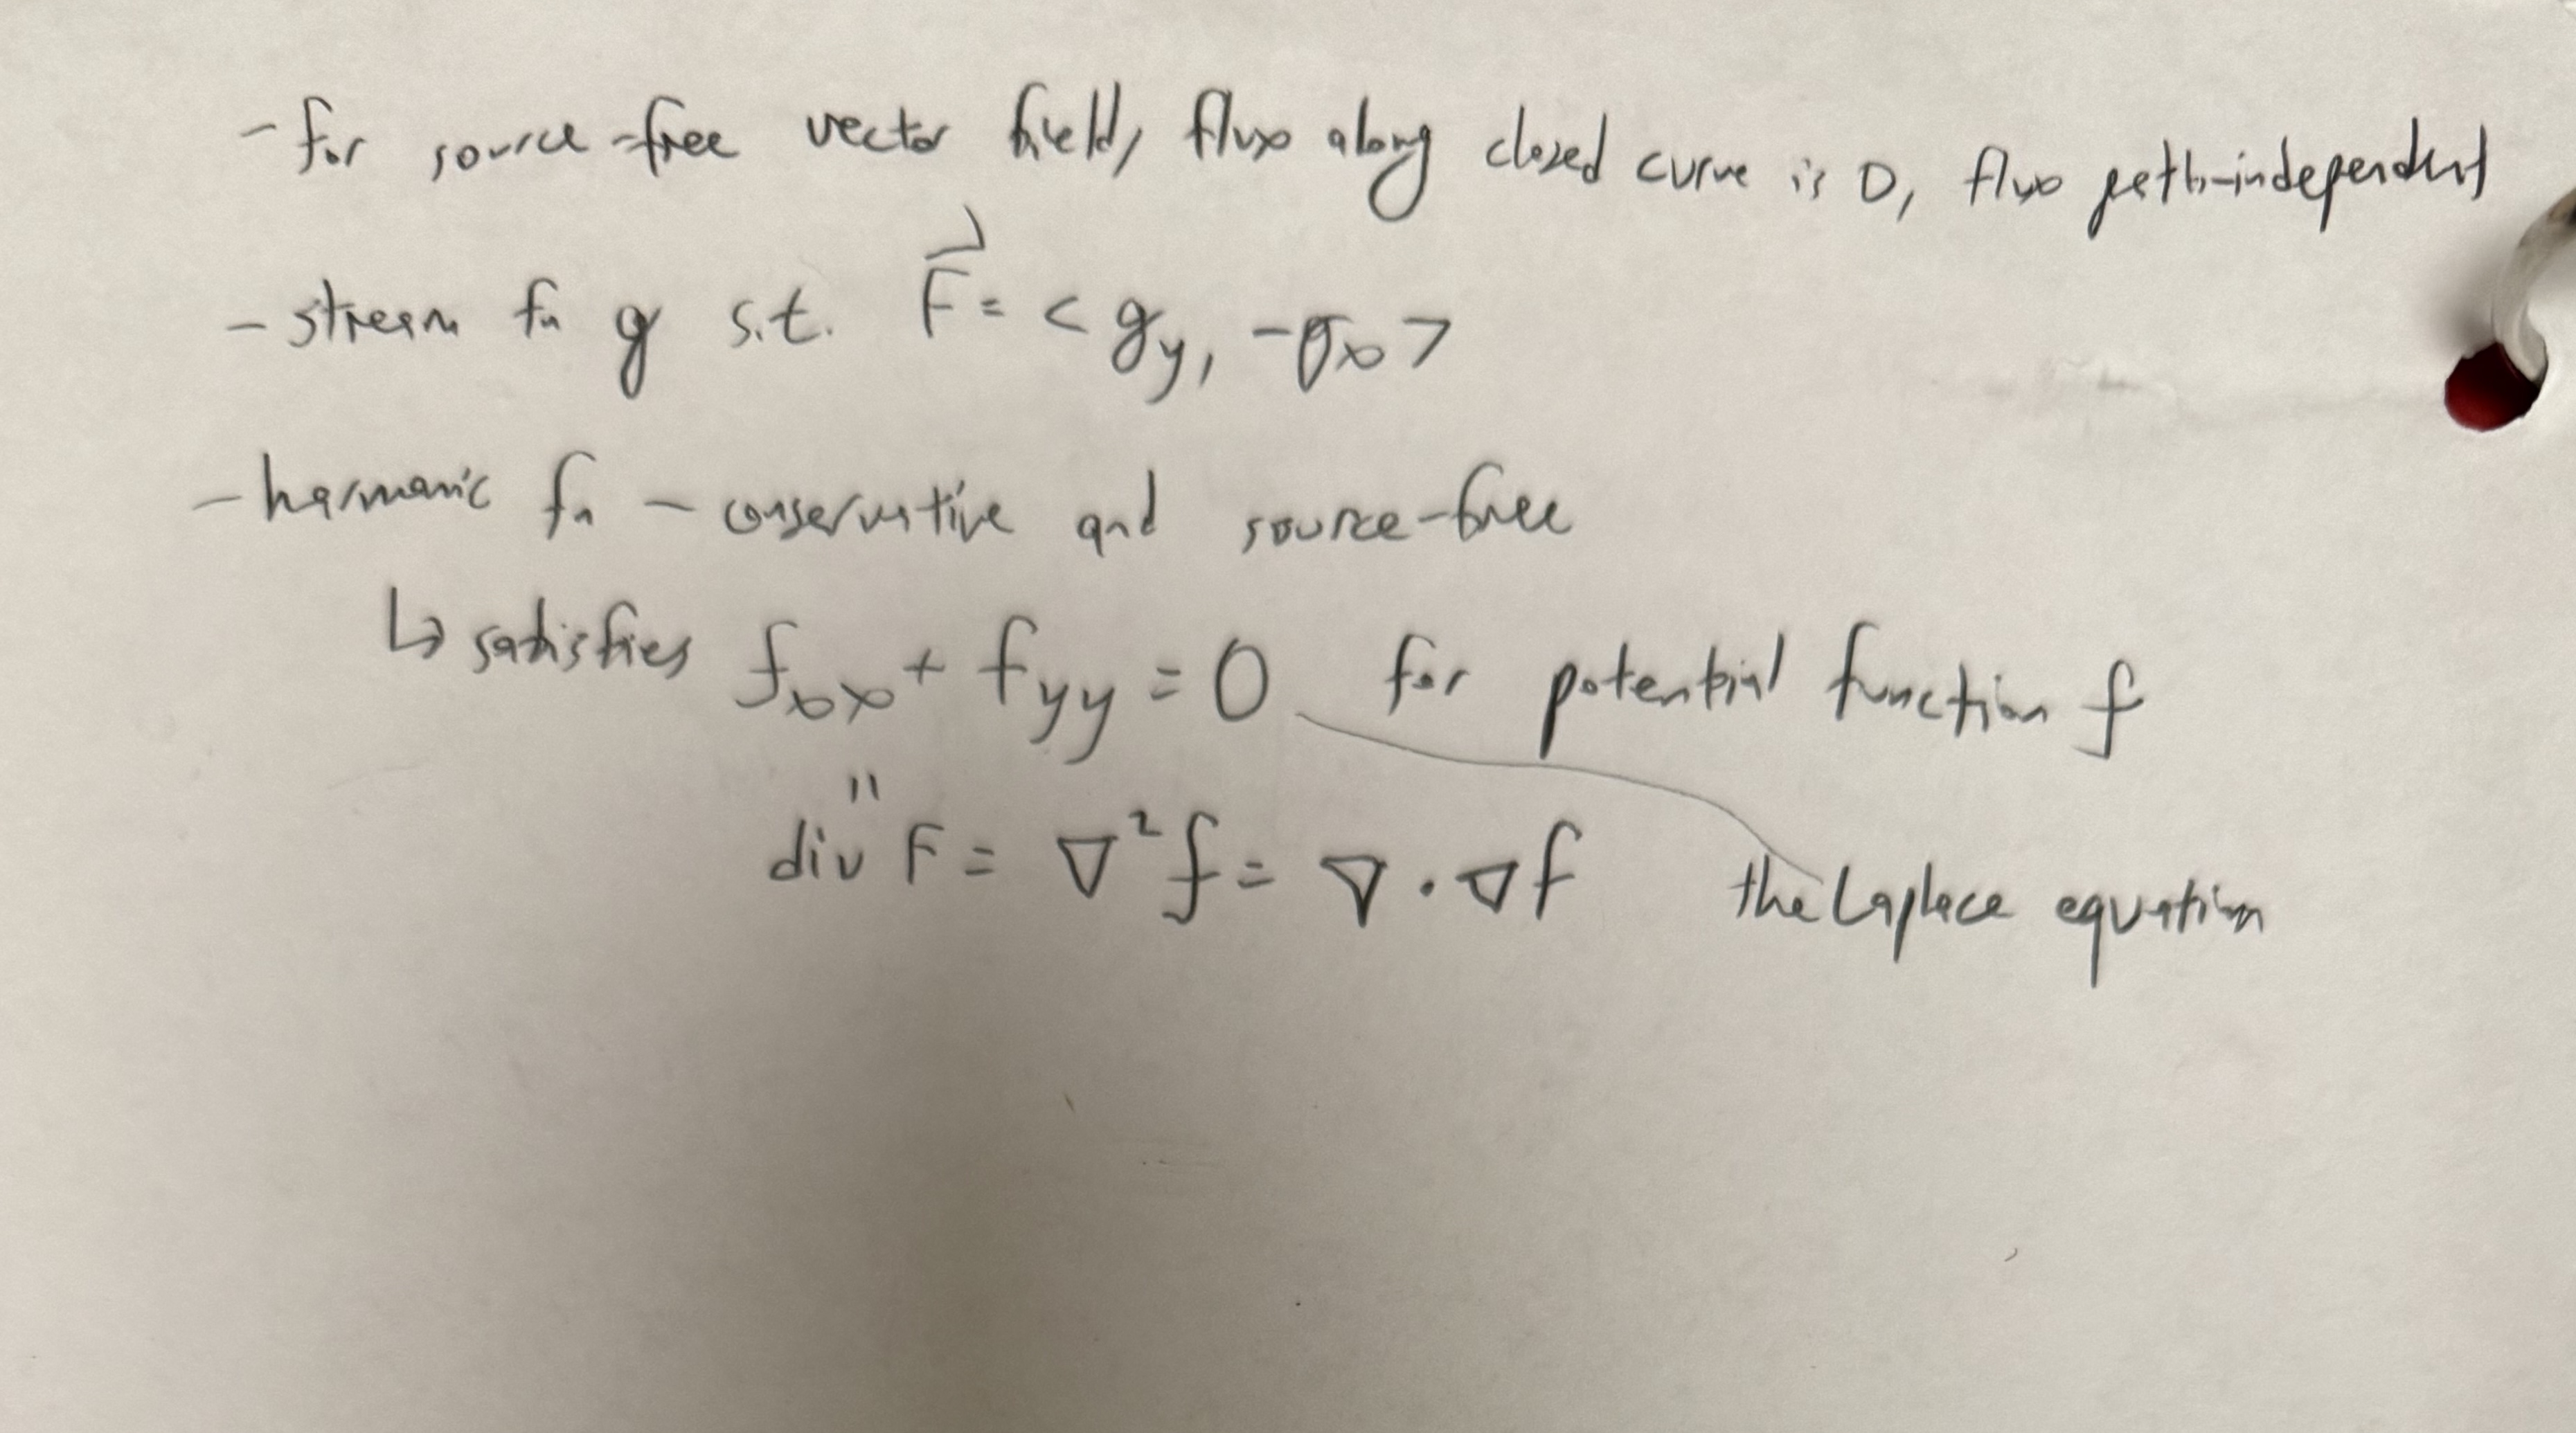 - for source-free vector field, flux along closed curve is 0, flux path-independent
- stream fn g s.t. F⃗ = < g_y, -g_x >
- harmonic fn - conservative and source-free
↳ satisfies f_xx + f_yy = 0 for potential function f
"
div F = ∇²f = ∇ · ∇f the Laplace equation